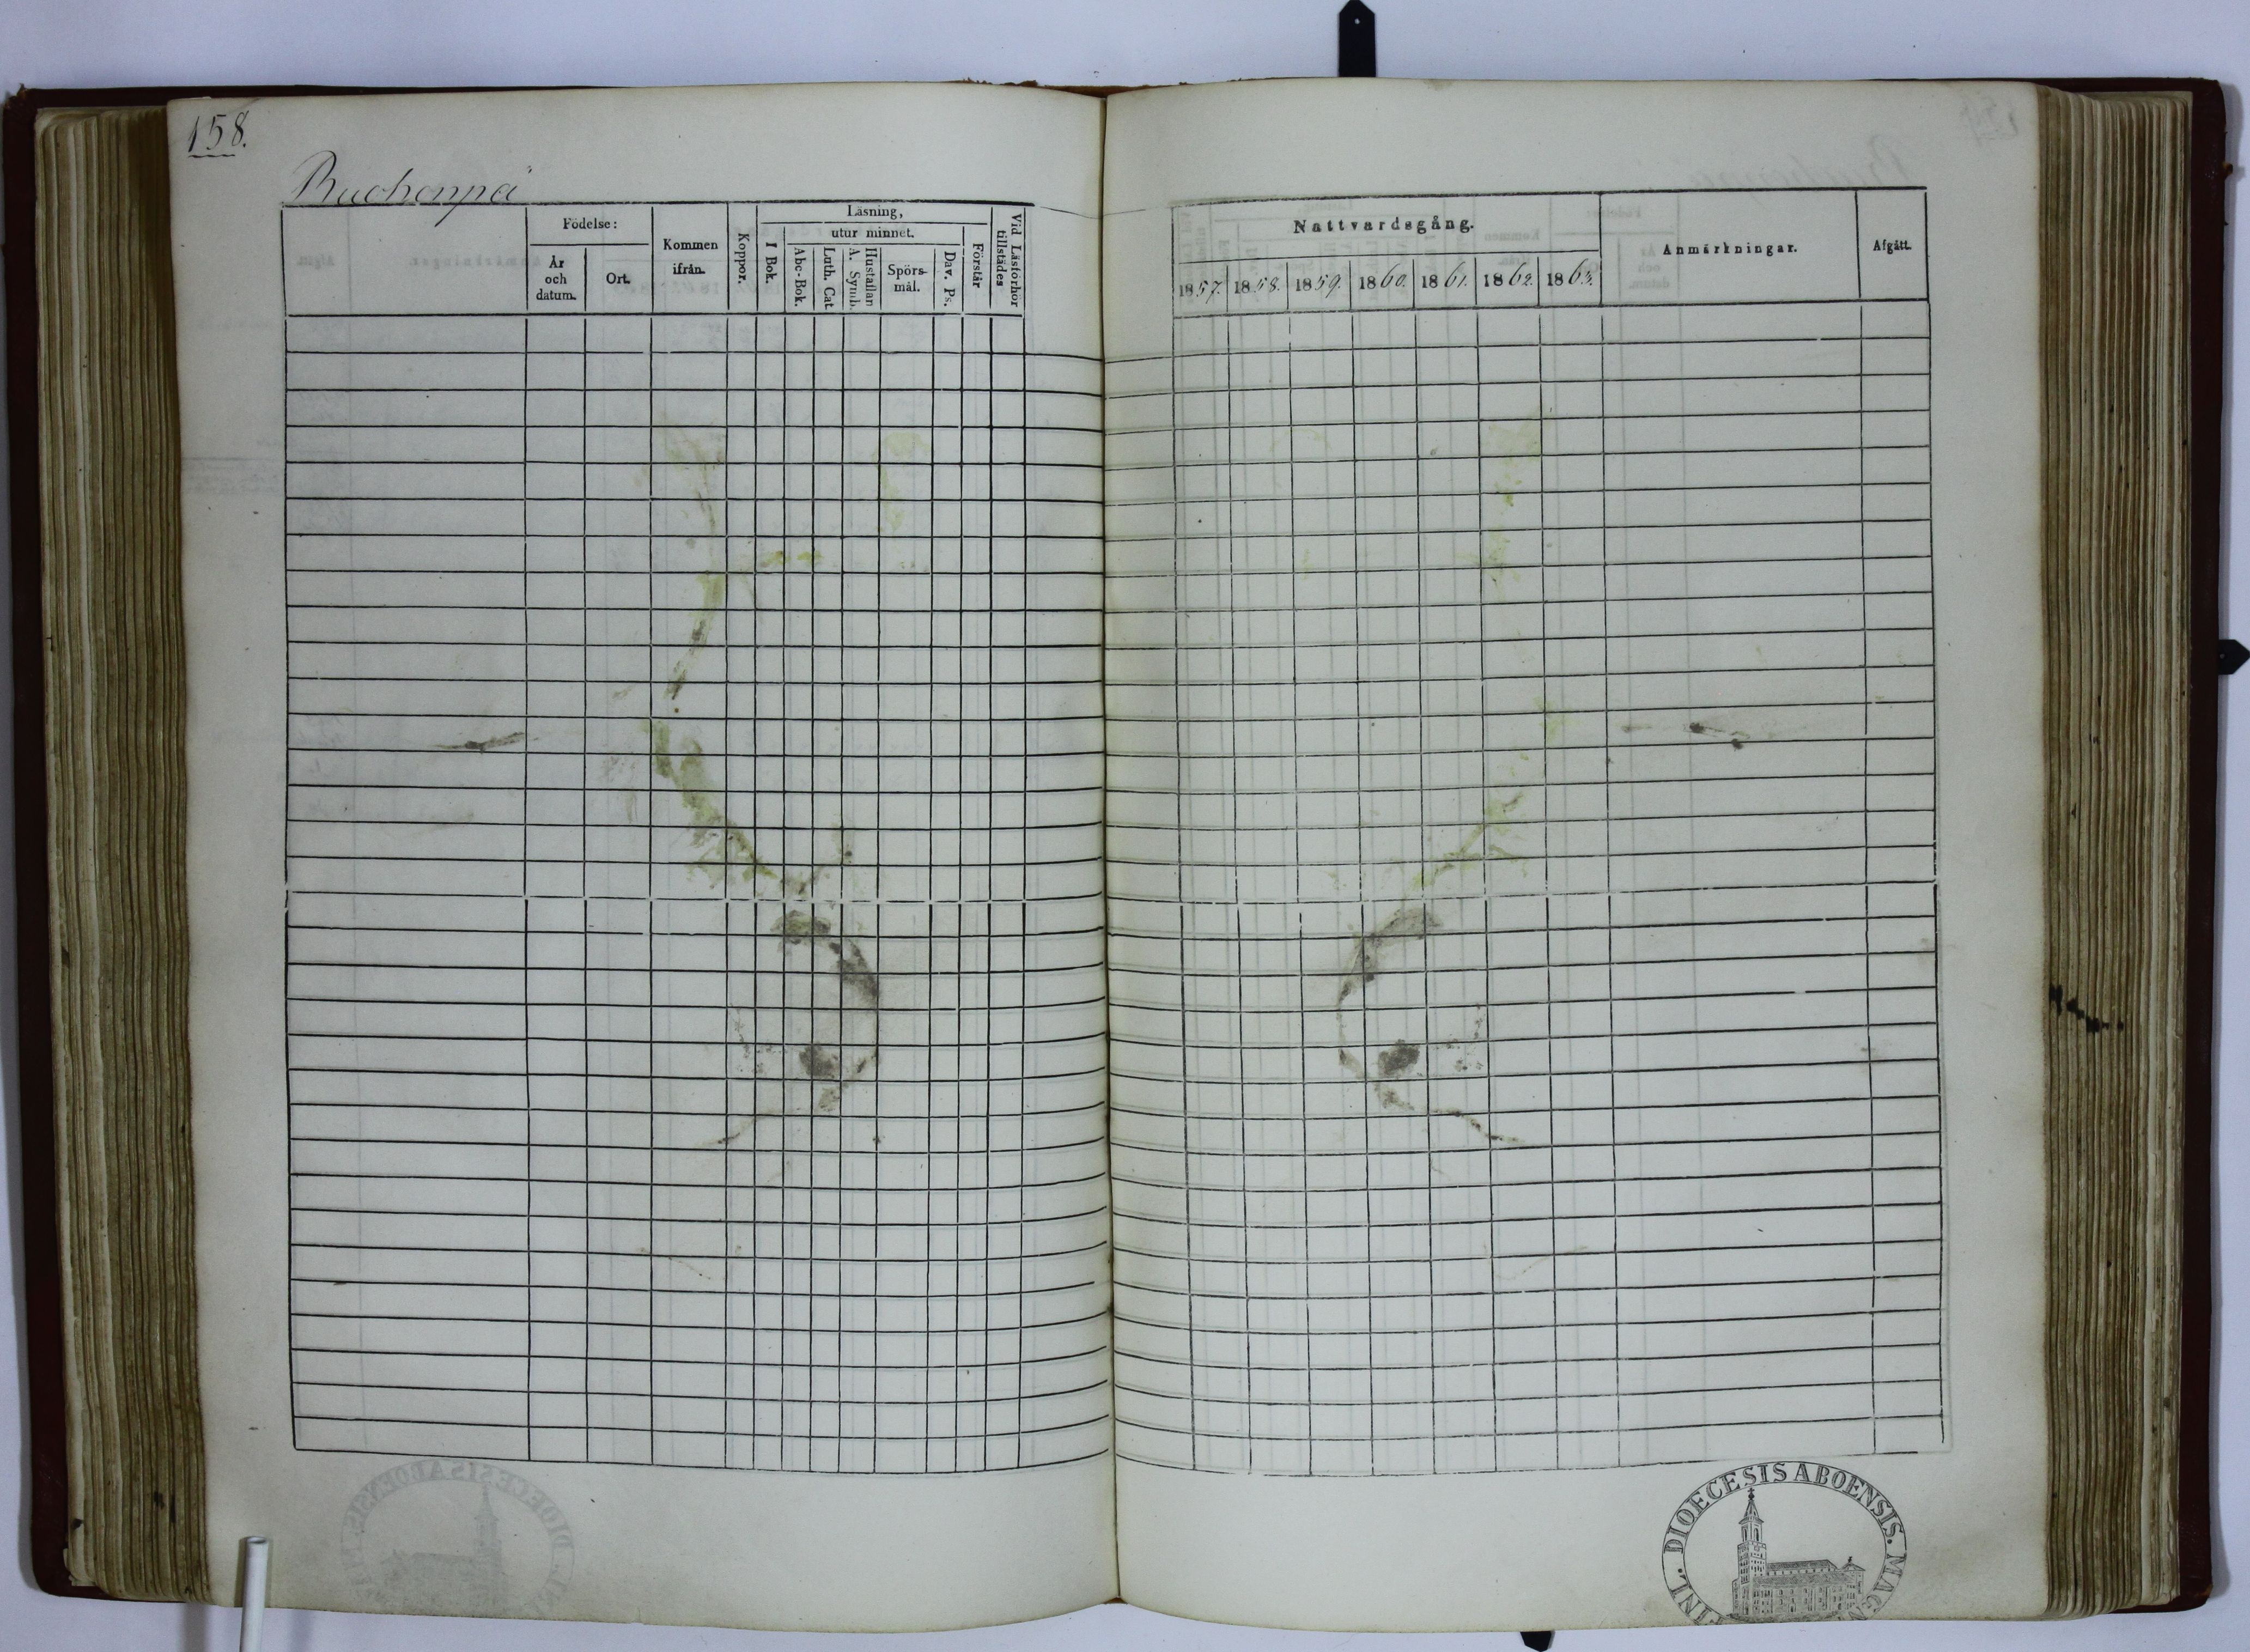 158.
Ruohonpä
Födelse:
År och datum.
Ort.
Kommen ifrån.
Koppor.
Läsning,
I Bok.
utur minnet.
Abc-Bok.
Luth. Cat
Hustaflan A. Symb.
Spörsmål.
Dav. Ps.
Förstår
Vid Läsförhör tillstädes
Nattvardsgång.
1857. 1858. 1859. 1860. 1861. 1862. 1863.
Anmärkningar.
Afgått.
DIOECESIS ABOENSIS. MAGN
FINL.